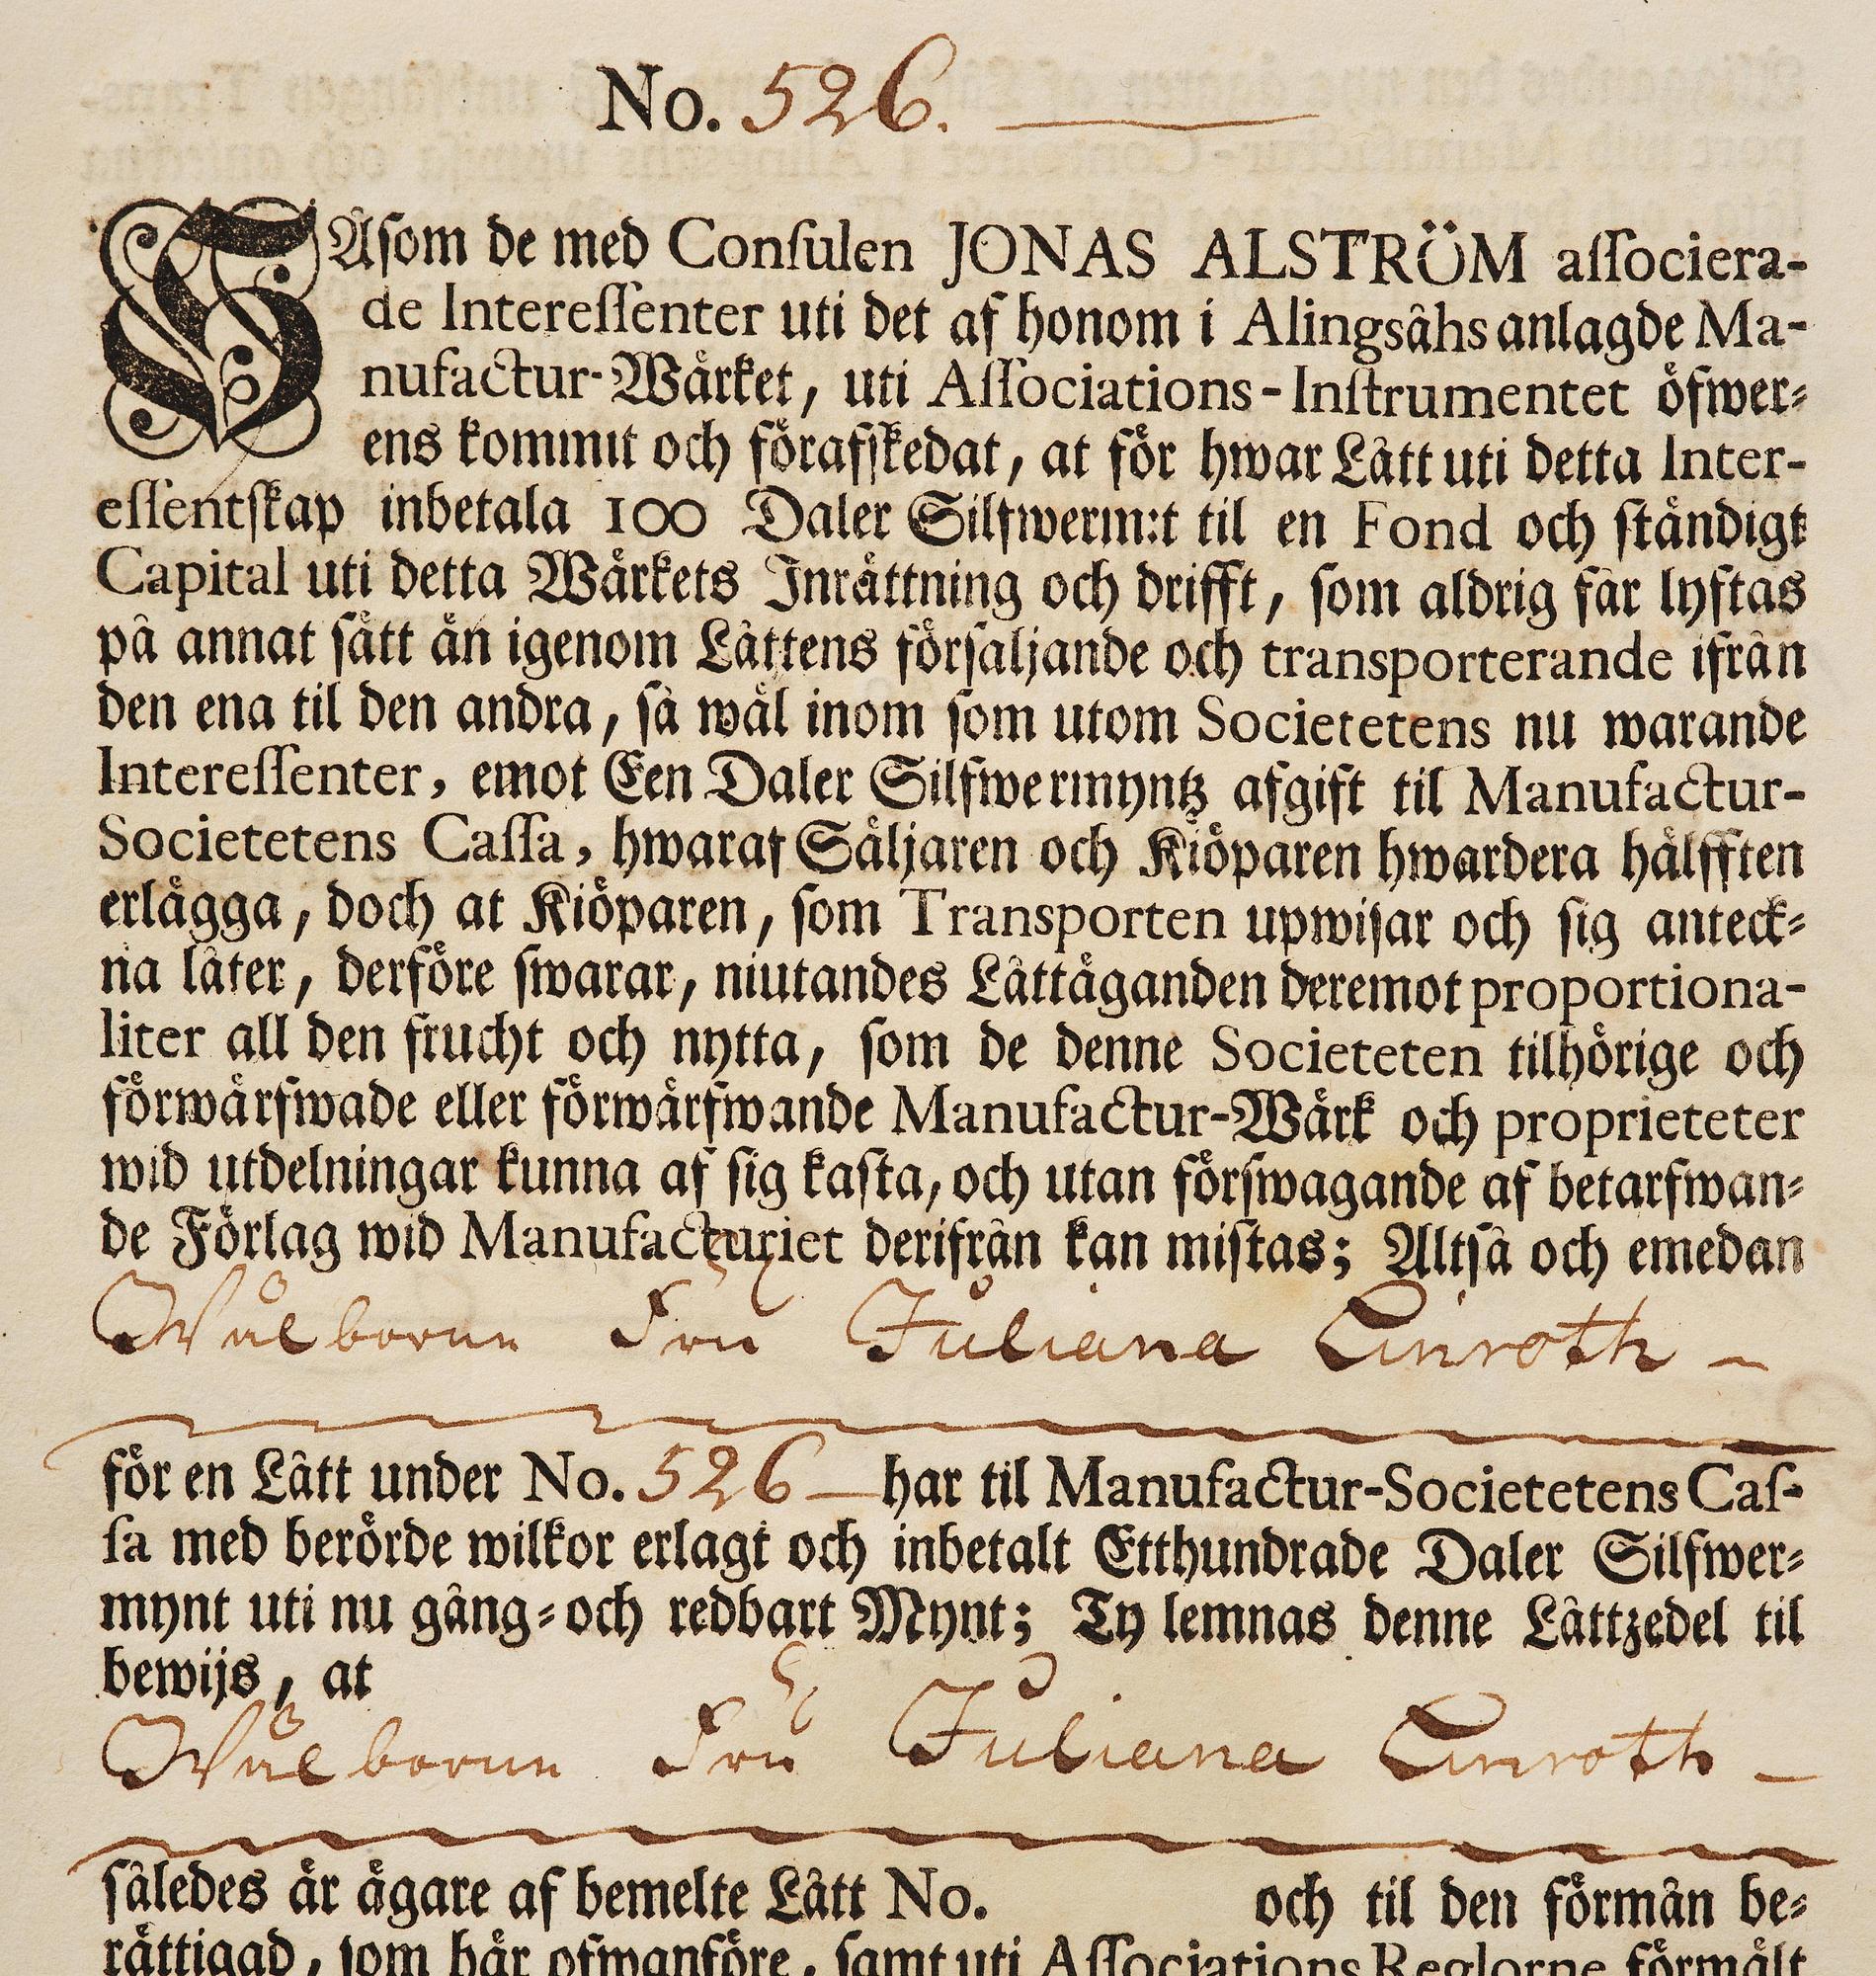 No. 526.
SÅsom de med Consulen JONAS ALSTRÖM associera-
de Interessenter uti det af honom i Alingsåhs anlagde Ma-
nufactur-Wårket, uti Associations-Instrumentet öfwer-
ens kommit och förafskedat, at för hwar Lått uti detta Inter-
essentskap inbetala 100 Daler Silfwerm:t til en Fond och ståndigt
Capital uti detta Wårkets Inråttning och drifft, som aldrig får lyftas
på annat sått ån igenom Låttens försaljande och transporterande ifrån
den ena til den andra, så wål inom som utom Societetens nu warande
Interessenter, emot Een Daler Silfwermyntz afgift til Manufactur-
Societetens Cassa, hwaraf Såljaren och Kiöparen hwardera hålfften
erlågga, doch at Kiöparen, som Transporten upwisar och sig anteck-
na låter, derföre swarar, niutandes Låttåganden deremot proportiona-
liter all den frucht och nytta, som de denne Societeten tilhörige och
förwårfwade eller förwårfwande Manufactur-Wårk och proprieteter
wid utdelningar kunna af sig kasta, och utan förswagande af betarfwan-
de Förlag wid Manufacturiet derifrån kan mistas; Altså och emedan
Wålborne Fru Juliana Linroth
för en Lått under No. 526 har til Manufactur-Societetens Cas-
sa med berörde wilkor erlagt och inbetalt Etthundrade Daler Silfwer-
mynt uti nu gång- och redbart Mynt; Ty lemnas denne Låttzedel til
bewijs, at
Wålborne Fru Juliana Linroth
således år ågare af bemelte Lått No. och til den förmån be-
råttigad, som hår ofwanföre, samt uti Associations Reglorne förmålt